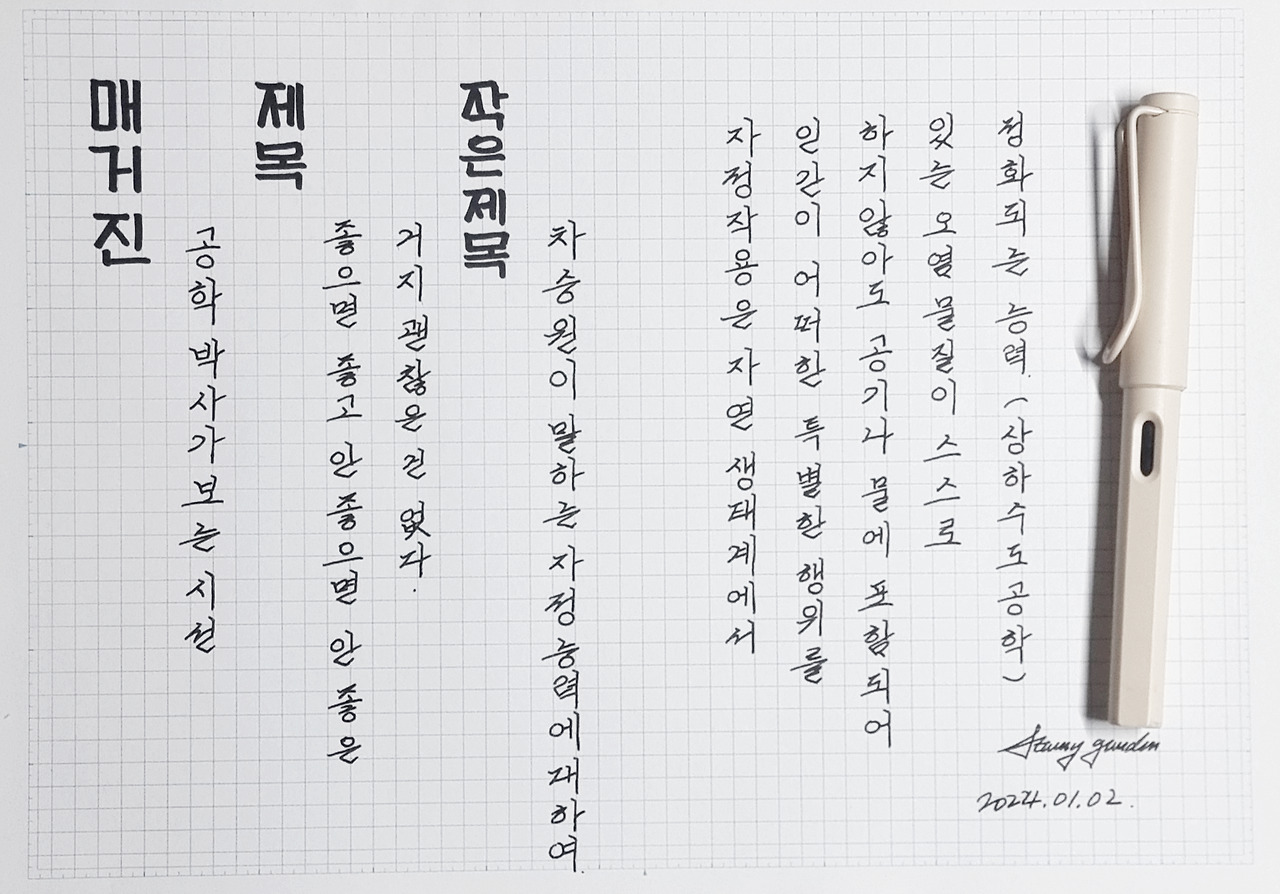 매거진
공학박사가 보는 시선
제목
좋으면 좋고 안 좋으면 안 좋은
거지 괜찮은 건 없다.
작은제목
차승원이 말하는 자정능력에 대하여
자정작용은 자연 생태계에서
인간이 어떠한 특별한 행위를
하지 않아도 공기나 물에 포함되어
있는 오염물질이 스스로
정화되는 능력.(상하수도공학)
Starry garden
2024.01.02.